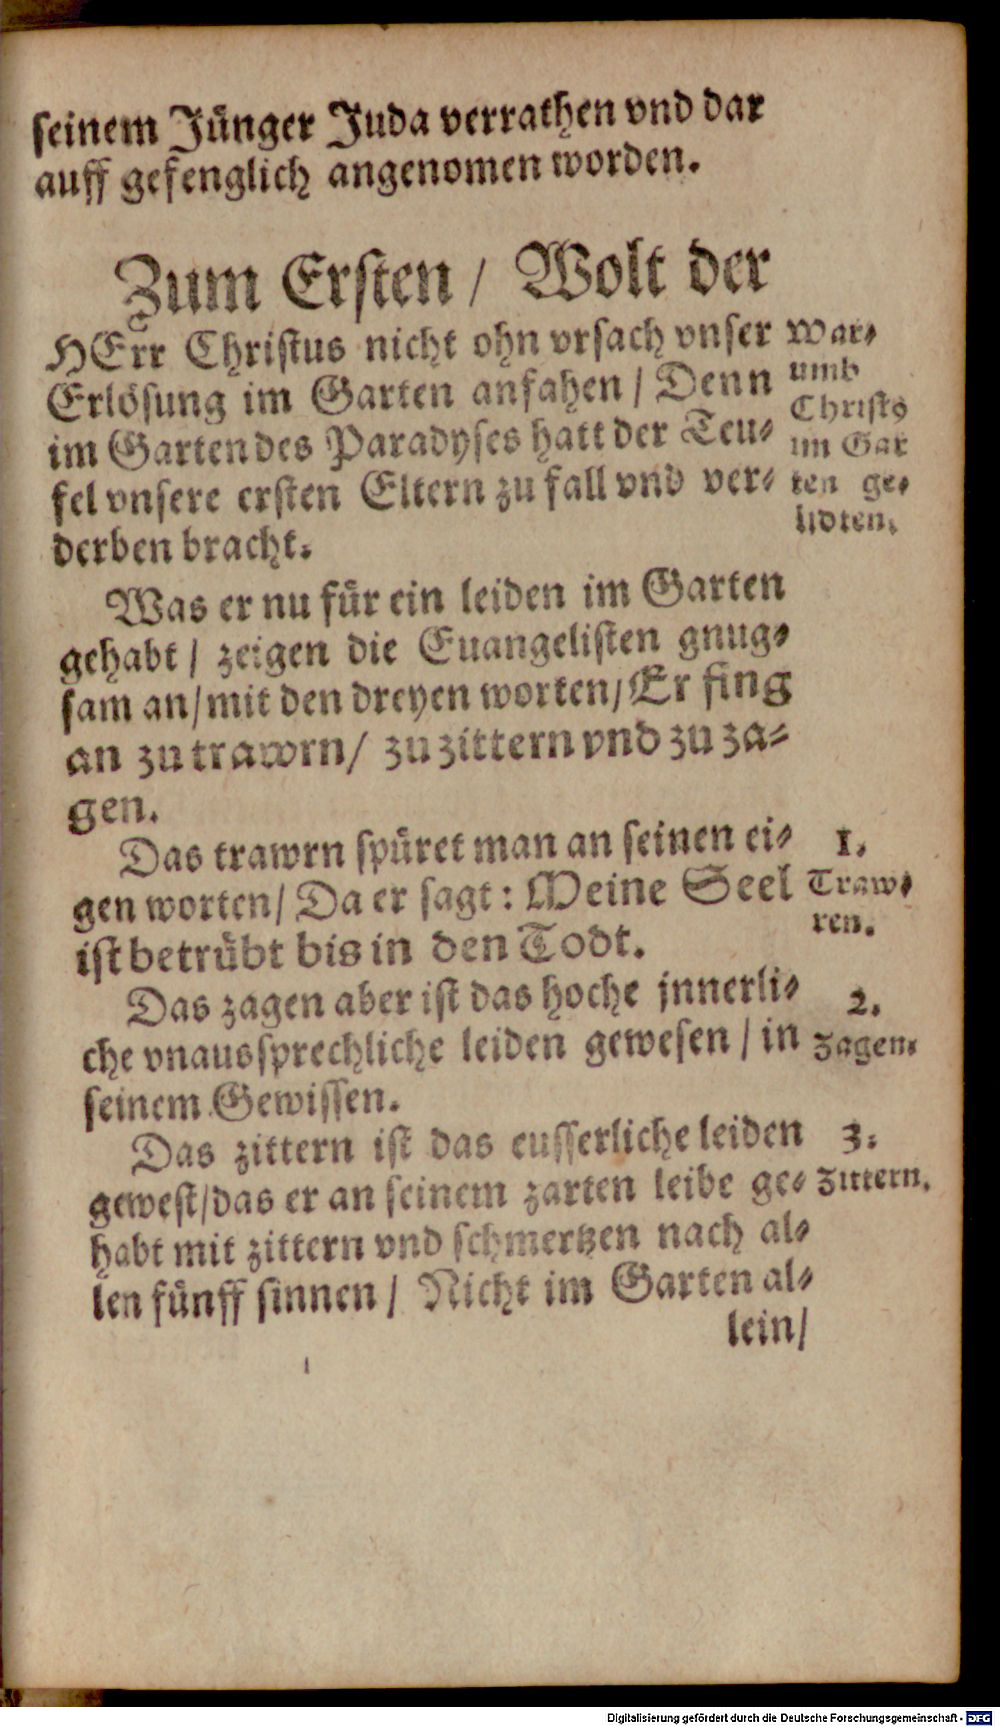 seinem Jünger Juda verrathen vnd dar
auff gefenglich angenomen worden.
Zum Ersten / Wolt der
HErr Christus nicht ohn vrsach vnser
Erlösung im Garten anfahen / Denn
im Garten des Paradyses hatt der Teu-
fel vnsere ersten Eltern zu fall vnd ver-
derben bracht.
War-
umb
Christ9
im Gar
ten ge-
lidten.
Was er nu für ein leiden im Garten
gehabt / zeigen die Euangelisten gnug-
sam an / mit den dreyen worten / Er fing
an zu trawrn / zu zittern vnd zu za-
gen.
Das trawrn spüret man an seinen ei-
gen worten / Da er sagt: Meine Seel
ist betrübt bis in den Todt.
1.
Traw-
ren.
Das zagen aber ist das hoche jnnerli-
che vnaussprechliche leiden gewesen / in
seinem Gewissen.
2.
Zagen.
Das zittern ist das eusserliche leiden
gewest / das er an seinem zarten leibe ge-
habt mit zittern vnd schmertzen nach al-
len fünff sinnen / Nicht im Garten al-
lein /
3.
Zittern.
Digitalisierung gefördert durch die Deutsche Forschungsgemeinschaft - DFG